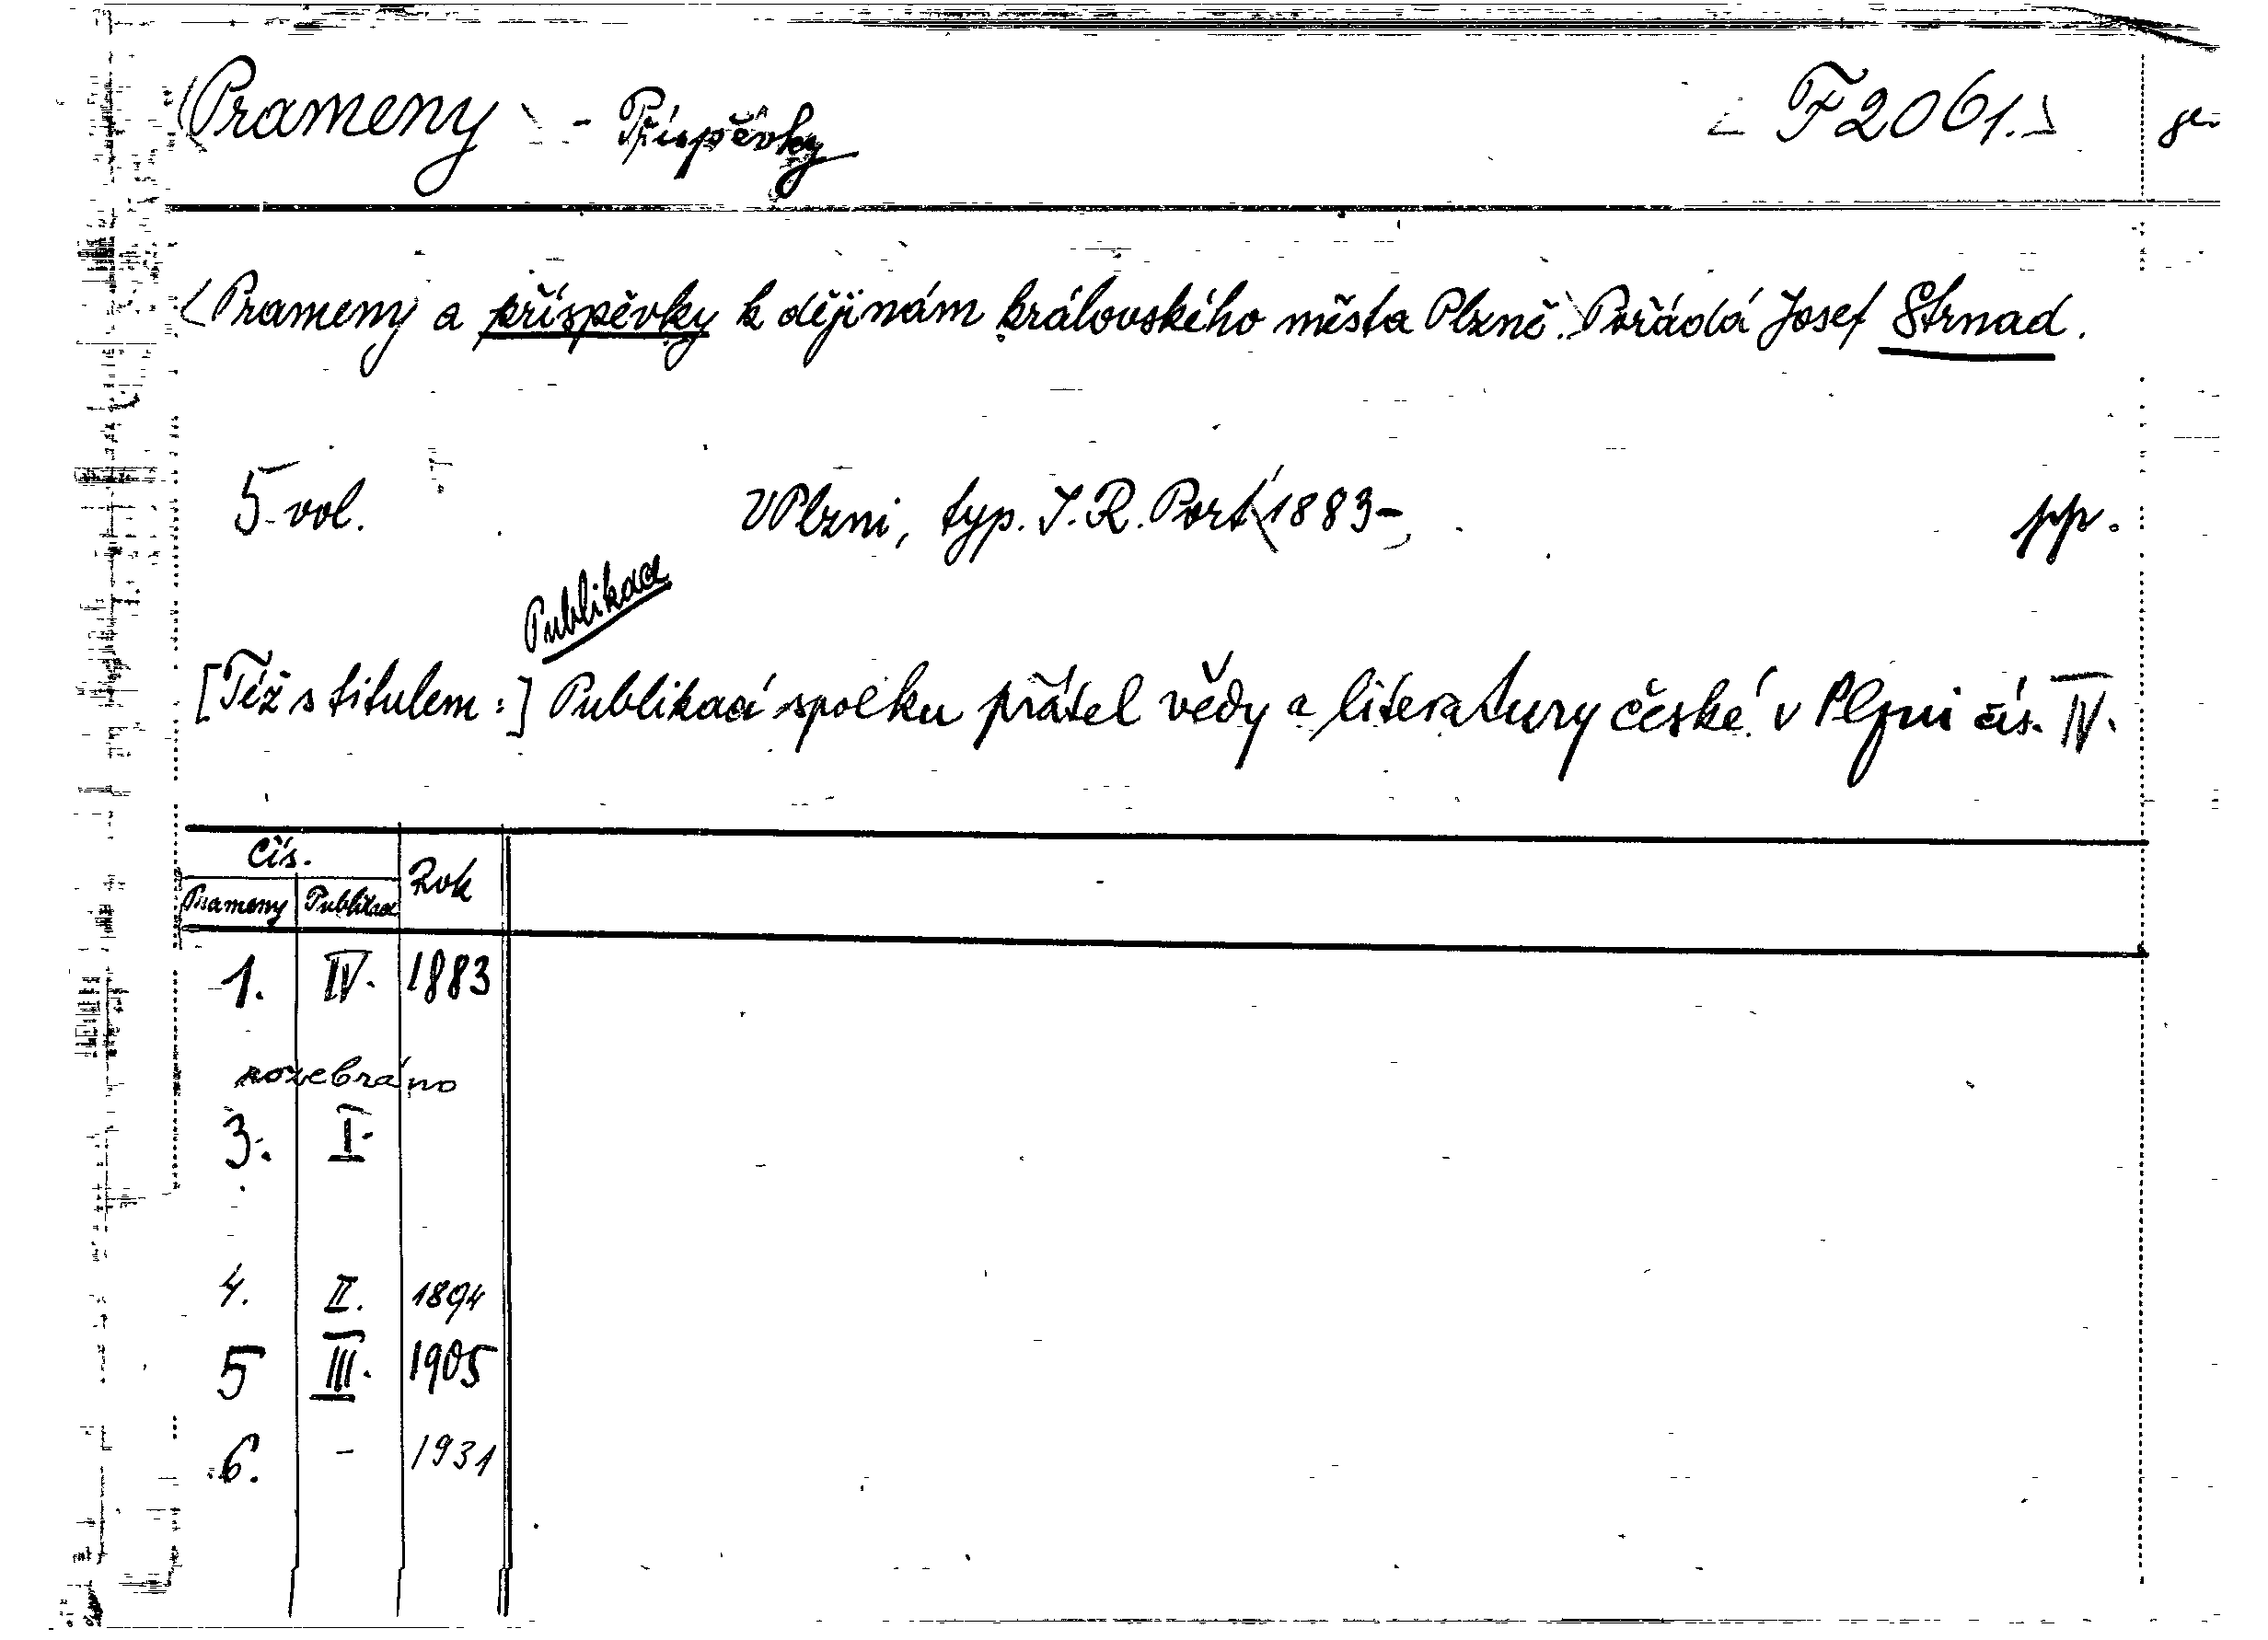 <Prameny> - Příspěvky <F 206 1.> ge-
<Prameny a příspěvky k dějinám královského města Plzně.> Pořádá Josef Strnad.
5 vol. V Plzni, typ. J. R. Port <1883-, pp.
Publikací
[Též s titulem:] Publikací spolku přátel vědy a literatury české v Plzni čís. IV.
Čís. Rok
Prameny Publikací
1. IV. 1883
rozebráno
3. I.
4. II. 1894
5 III. 1905
6. - 1931